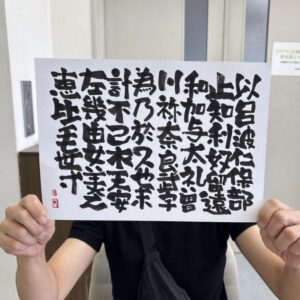 以呂波仁保部
止知利奴留遠
和加与太礼曽
川祢奈良武宇
為乃於久也末
計不己衣天安
左幾由女美之
恵比毛世寸